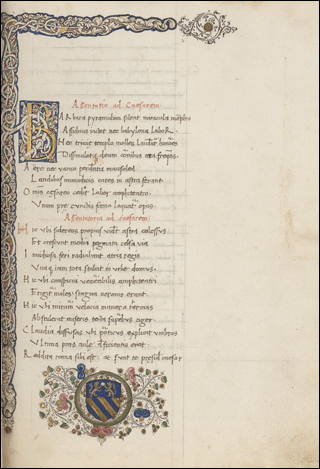 Assentatio ad Caesarem:
BARbara pyramidum sileat miracula memphis
Assiduus iactet nec babylona laboR
Nec triuie templo molles laudentur honores
Dissimuletque deum cornibus ara frequens
Aere nec vacuo pendentia mausolea
Laudibus immodicis cares in astra ferant
Omnis cesareo cedat labor amphiteatro
Vnum pre cunctis fama loquatur opus.
Assentatio ad caesarem:
Hic ubi sidereus propius videt astra colossus
Et crescunt media pegmata celsa via
Inuidiosa feri radiabant atria regis
Vnaque iam tota stabat in urbe domus.
Hic ubi conspicui venerabilis amphiteatri
Erigitur moles stagna neronis erant
Hic ubi miramur velocia munera termas
Abstulerat miseris tecta superbus ager
Claudia diffusas ubi porticus explicat umbras
Vltima pars aule deficientis erat
Reddita roma sibi est et sunt te preside cesar